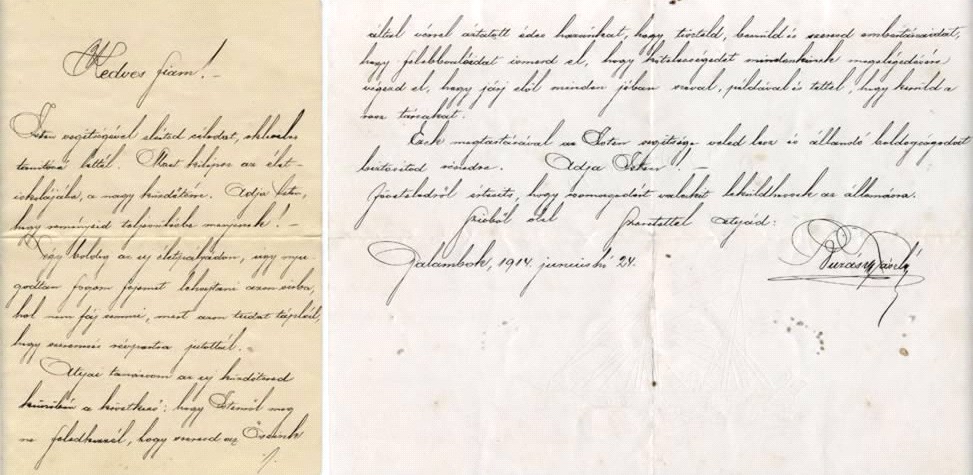 Kedves fiam! –
Isten segítségével elérted célodat, okleveles
tanító lettél. Most kilépsz az élet-
iskolájába, a nagy küzdőtérre. Adja Isten,
hogy reményeid teljesülésbe menjenek! –
Légy boldog az uj életpályádon, úgy nyu-
godtan fogom fejemet lehajtani azon sírba,
hol nem fáj semmi, mert azon tudat táplál,
hogy szerencsés révpartra jutottál.
Atyai tanácsom az uj küzdtéred
küszöbén a következő: hogy Istenről meg
ne feledkezzél, hogy szeresd az Őseink
által vérrel áztatott édes hazánkat, hogy tiszteld, becsüld és szeresd embertársaidat,
hogy felebbvalóidat ismerd el, hogy kötelességedet mindenkinek megelégedésére
végezd el, hogy járj elől minden jóban szóval, példával és tettel, hogy kerüld a
rossz társakat.
Ezek megtartásával az Isten segítsége veled lesz és állandó boldogságodat
biztosítod részedre. Adja Isten! –
értesíts, hogy valakit leküldhessek az állomásra.
Szívből ölel Szeretettel Atyád:
Galambok, 1914. junius hó 24. László